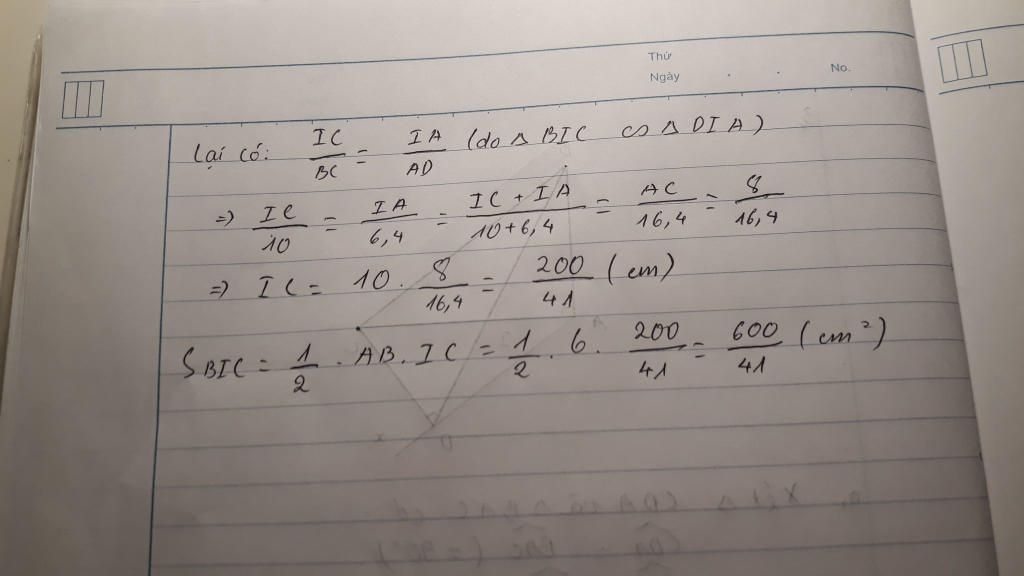 Thứ
Ngày . . No.
Lại có: IC/BC = IA/AD (do △ BIC ∽ △ DIA)
=> IC/10 = IA/6,4 = IC + IA/10+6,4 = AC/16,4 = 8/16,4
=> IC = 10 . 8/16,4 = 200/41 (cm)
S_BIC = 1/2 . AB . IC = 1/2 . 6 . 200/41 = 600/41 (cm²)